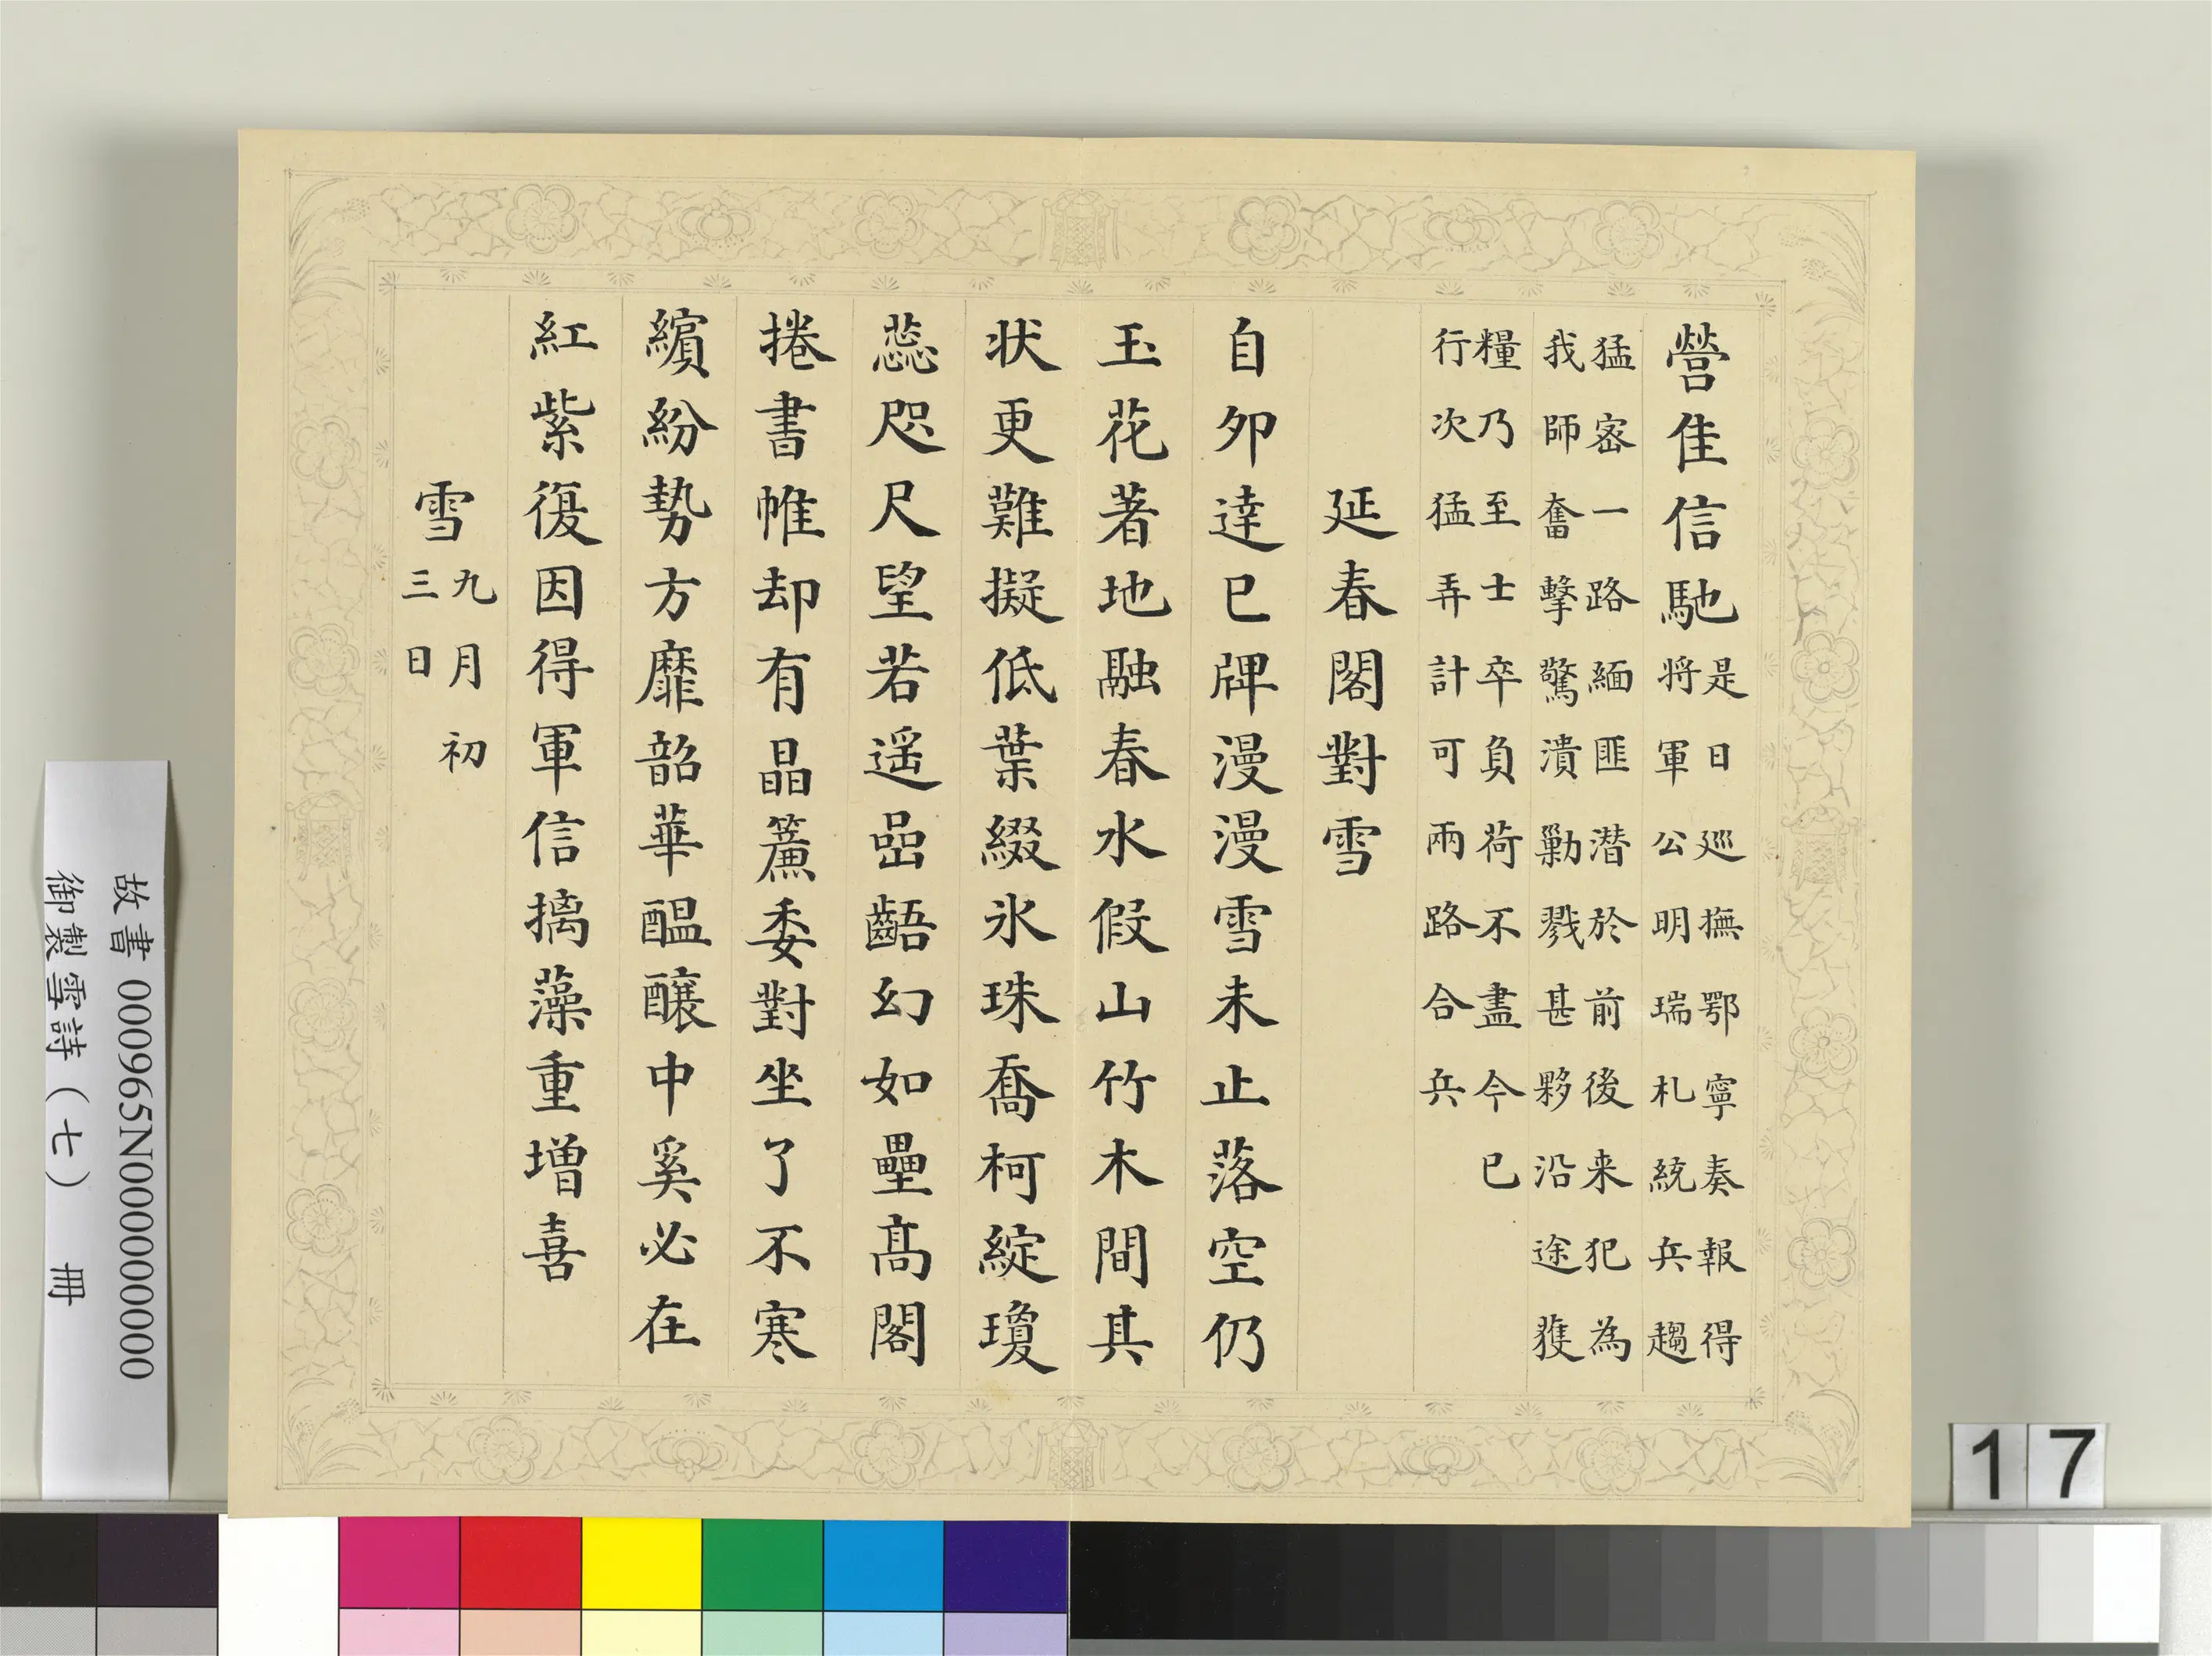 營隹信馳是日巡撫鄂寧奏報得
將軍公明瑞札統兵趨
猛密一路緬匪潛於前後来犯為
我師奮擊驚潰勦戮甚夥沿途獲
糧乃至士卒負荷不盡今已
行次猛弄計可兩路合兵
延春閣對雪
自夘達巳牌漫漫雪未止落空仍
玉花著地融春水假山竹木間其
状更難擬低葉綴氷珠喬柯綻瓊
蕊咫尺望若遥嵒齬幻如壘髙閣
捲書帷却有晶簾委對坐了不寒
繽紛勢方靡韶華醖釀中奚必在
紅紫復因得軍信摛藻重増喜
雪九月初
三日
故書 000965N000000000
御製雪詩（七） 冊
17